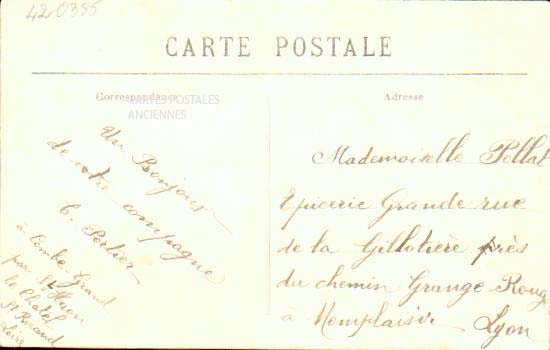 42-0385
CARTE POSTALE
Correspondance
CARTES POSTALES
ANCIENNES
Adresse
Un Bonjour
de votre compagne
C. Portier
à Combe-Grand
par St Haon
le Chatel
St Rirand
Loire
Mademoiselle Pellat
Epicerie Grande rue
de la Gillotière près
du chemin Grange-Roug
à Momplaisir Lyon